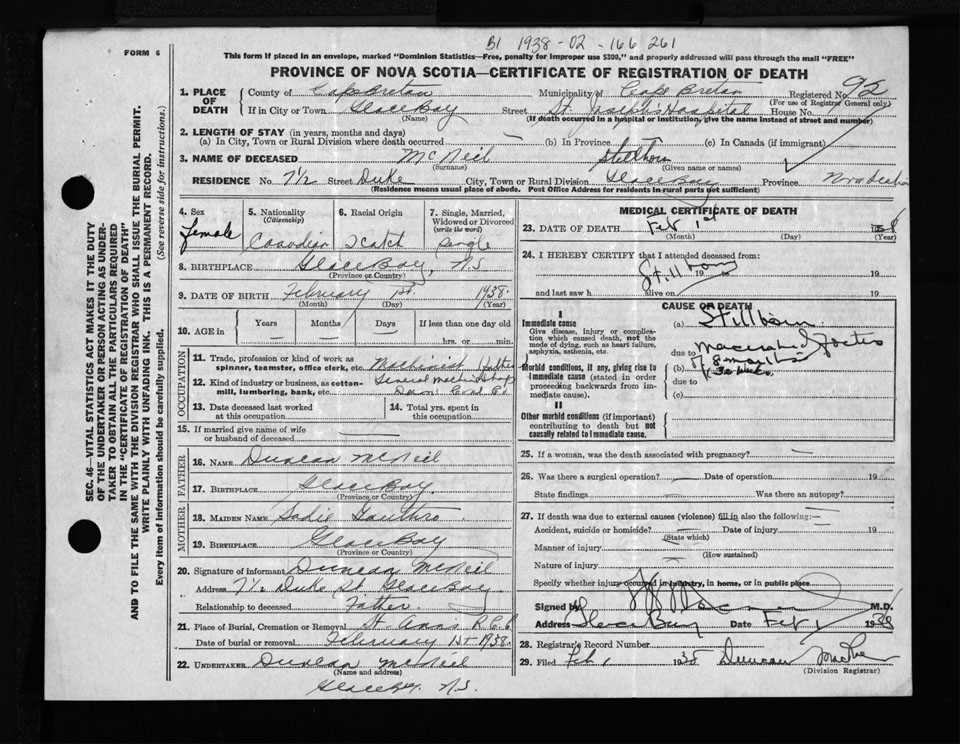 B1 1938-02-166 261
FORM 6
This form if placed in an envelope, marked "Dominion Statistics—Free, penalty for improper use $300," and properly addressed will pass through the mail "FREE"
PROVINCE OF NOVA SCOTIA—CERTIFICATE OF REGISTRATION OF DEATH
SEC. 46—VITAL STATISTICS ACT MAKES IT THE DUTY
OF THE UNDERTAKER OR PERSON ACTING AS UNDER-
TAKER TO OBTAIN ALL THE PARTICULARS REQUIRED
IN THE "CERTIFICATE OF REGISTRATION OF DEATH"
AND TO FILE THE SAME WITH THE DIVISION REGISTRAR WHO SHALL ISSUE THE BURIAL PERMIT.
WRITE PLAINLY WITH UNFADING INK. THIS IS A PERMANENT RECORD.
Every item of information should be carefully supplied. (See reverse side for instructions.)
1. PLACE OF DEATH County of Cape Breton Municipality of Cape Breton Registered No. 92
(For use of Registrar General only)
If in City or Town Glace Bay Street St. Joseph's Hospital House No.
(Name) (If death occurred in a hospital or institution, give the name instead of street and number)
2. LENGTH OF STAY (in years, months and days)
(a) In City, Town or Rural Division where death occurred — (b) In Province (c) In Canada (if immigrant)
3. NAME OF DECEASED McNeil Stillborn
(Surname) (Given name or names)
RESIDENCE No. 7 1/2 Street Duke City, Town or Rural Division Glace Bay Province Nova Scotia
(Residence means usual place of abode. Post Office Address for residents in rural parts not sufficient)
4. Sex 5. Nationality (Citizenship) 6. Racial Origin 7. Single, Married, Widowed or Divorced (write the word)
Female Canadian Scotch Single
8. BIRTHPLACE Glace Bay, N.S
(Province or Country)
9. DATE OF BIRTH February 1st. 1938.
(Month) (Day) (Year)
10. AGE in Years Months Days If less than one day
— — — hrs. or min.
OCCUPATION
11. Trade, profession or kind of work as
spinner, teamster, office clerk, etc. Machinist father
12. Kind of industry or business, as cotton-
mill, lumbering, bank, etc. General machine shop
Dom. Coal Co
13. Date deceased last worked at this occupation
14. Total yrs. spent in this occupation
15. If married give name of wife
or husband of deceased —
FATHER
16. NAME Duncan McNeil
17. BIRTHPLACE Glace Bay.
(Province or Country)
MOTHER
18. MAIDEN NAME Sadie Gouthro
19. BIRTHPLACE Glace Bay
(Province or Country)
20. Signature of informant Duncan McNeil
Address 7 1/2 Duke St. Glace Bay
Relationship to deceased Father.
21. Place of Burial, Cremation or Removal St. Anns R.C.C
Date of burial or removal February 1st 1938.
22. UNDERTAKER Duncan McNeil
(Name and address)
Glace Bay. N.S.
MEDICAL CERTIFICATE OF DEATH
23. DATE OF DEATH Feb 1st 1938
(Month) (Day) (Year)
24. I HEREBY CERTIFY that I attended deceased from
Stillborn 19 to 19
and last saw h alive on 19
CAUSE OF DEATH
I
Immediate cause
Give disease, injury or complica-
tion which caused death, not the
mode of dying, such as heart failure,
asphyxia, asthenia, etc.
(a) Stillborn
due to Macerated foetus
Morbid conditions, if any, giving rise to
immediate cause (stated in order
proceeding backwards from im-
mediate cause).
(b) of 8 months
due to
(c)
II
Other morbid conditions (if important)
contributing to death but not
causally related to immediate cause.
25. If a woman, was the death associated with pregnancy? —
26. Was there a surgical operation? — Date of operation 19
State findings Was there an autopsy?
27. If death was due to external causes (violence) fill in also the following:—
Accident, suicide or homicide? Date of injury 19
(State which)
Manner of injury
(How sustained)
Nature of injury
Specify whether injury occurred in industry, in home, or in public place
Signed by M.D.
Address Glace Bay Date Feb 1 1938
28. Registrar's Record Number
29. Filed Feb 1 1938 Duncan
(Division Registrar)